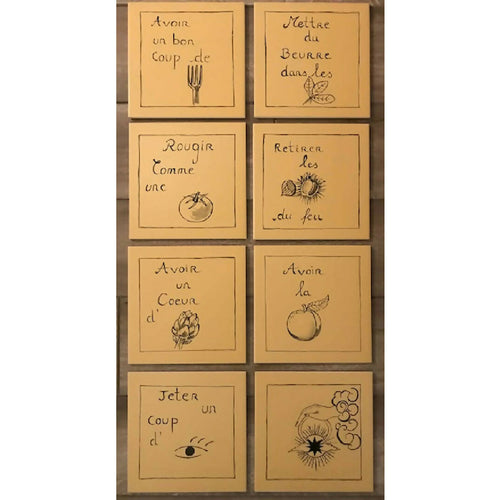 Avoir
un bon
Coup de
Mettre
du
Beurre
dans les
Rougir
Comme
une
Retirer
les
du feu
Avoir
un
Coeur
d'
Avoir
la
Jeter
un
Coup
d'